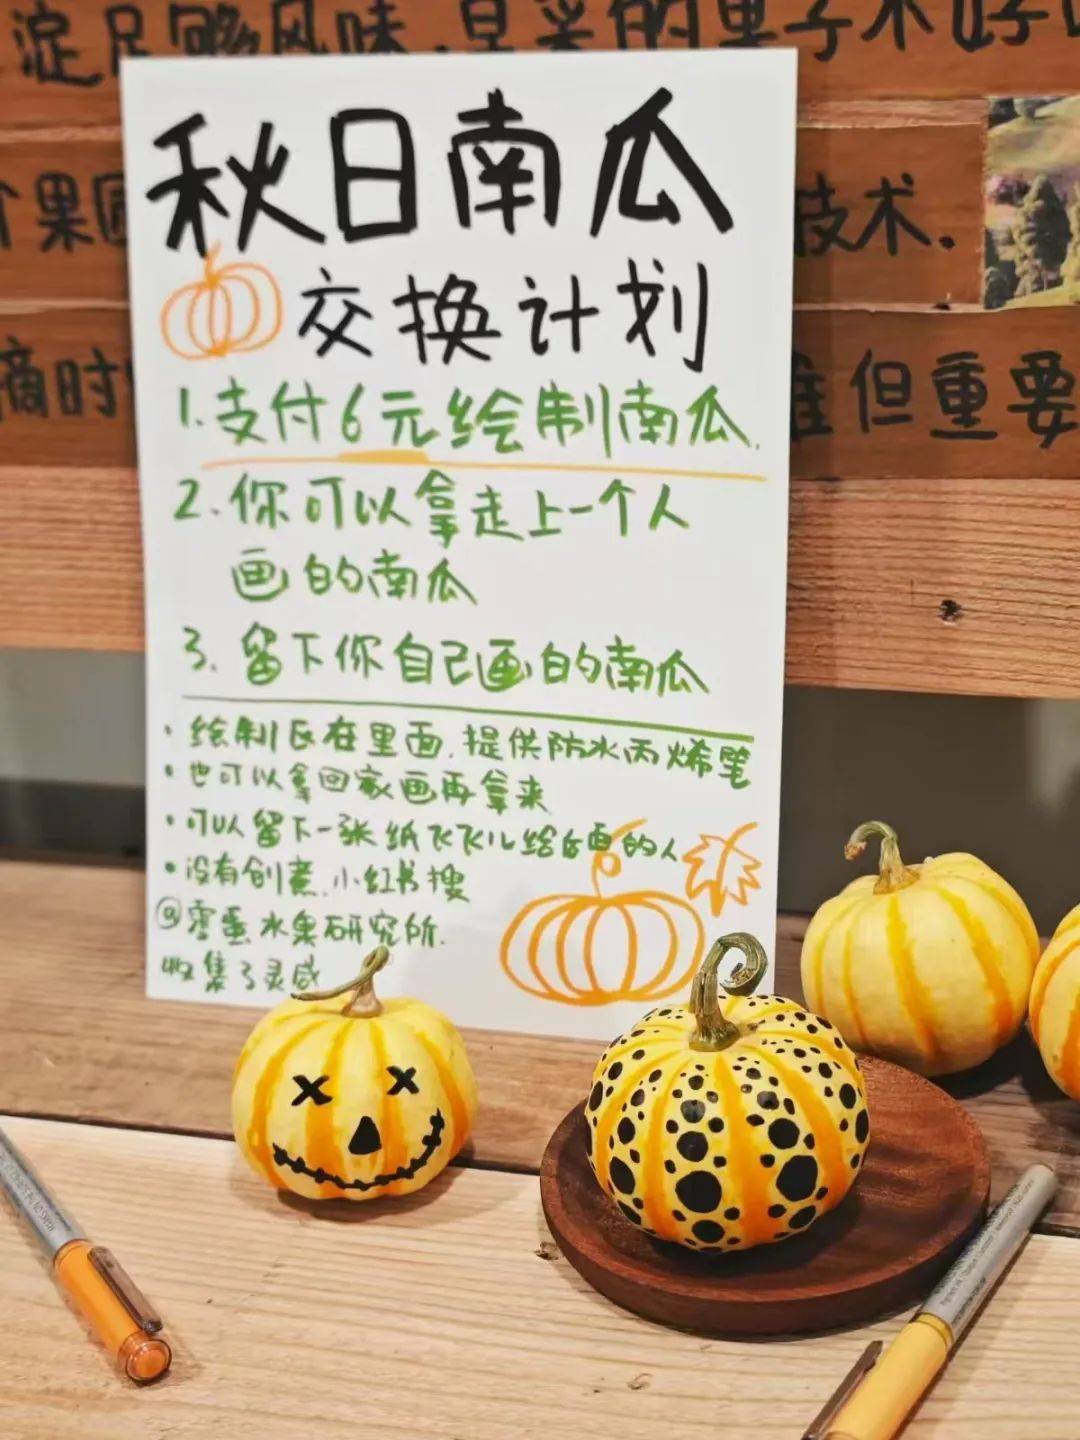 淀足够风味.早采的果子不好
个果园
技术.
摘时
但重要
秋日南瓜
交换计划
1.支付6元绘制南瓜.
2.你可以拿走上一个人
画的南瓜
3.留下你自己画的南瓜
·绘制区在里面.提供防水丙烯笔
·也可以拿回家画再拿来
·可以留下一张纸飞飞儿给后面的人
·没有创意.小红书搜
@零蛋水果研究所.
收集了灵感